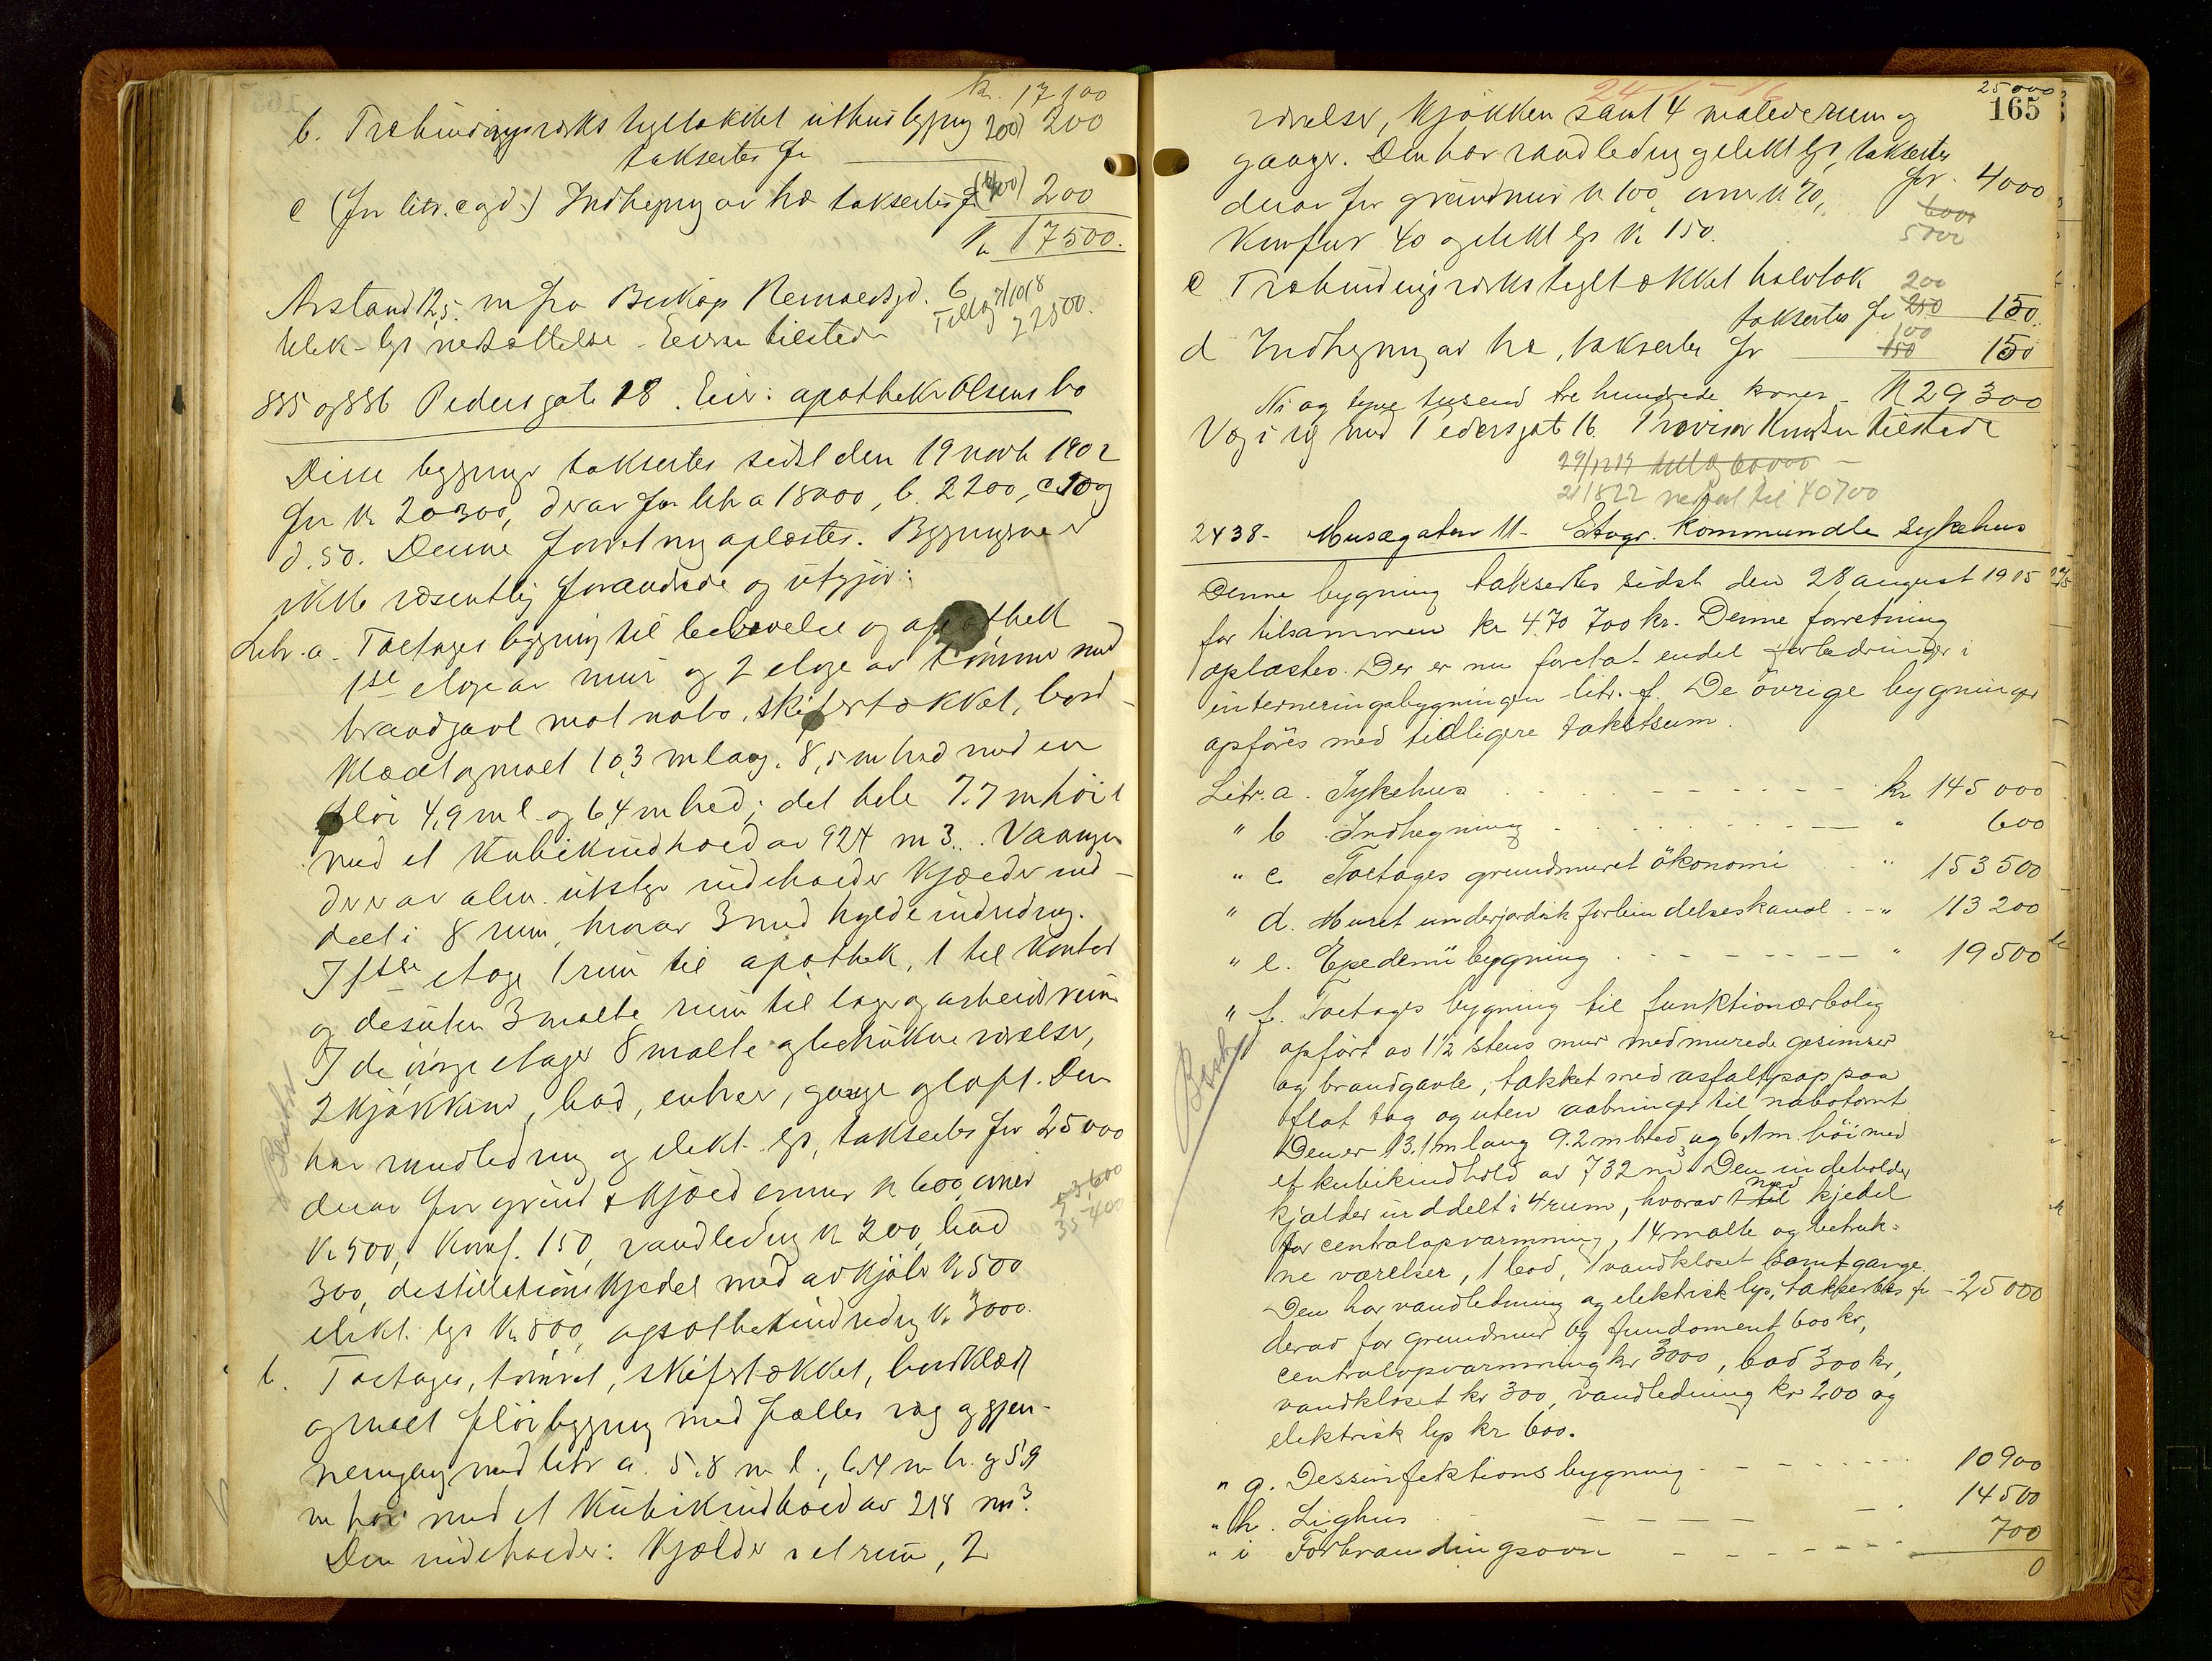 Kr. 17 100
b. Træbindingsverks tegltækket uthusbygning 200) 200
takseres for
c (før litr. c og d.) Indhegning av træ takseres for (400) 200
Kr 17500.
Avstand 12,5 m fra Biskop Reinaldsgd. 6
elek- lys, nedsættelse. Eieren tilstede
Tillæg 7/1018
22500.
885 og 886 Pedersgate 18. Eier: apotheker Olsens bo
Disse bygninger taksertes sidst den 19 novb 1902
for kr 20300, derav for litr a 18000, b. 2200, c. 50 og
d. 50. Denne forretning oplæstes. Bygningerne er
ikke væsentlig forandrede og utgjør:
Litr. a. Toetages bygning til beboelse og apothek
1ste etage av mur og 2 etage av tømmer med
brandgavl mot nabo, skifertækket, bord-
klædt og malt 10,3 m lang, 8,5 m bred med en
fløi 4,9 m l. og 6,4 m bred; det hele 7.7 m høit
med et kubikindhold av 924 m3. Vaaningen
der er av alm. utstyr indeholder kjælder ind-
delt i 8 rum, hvorav 3 med hyldeindredning.
I 1ste etage 1 rum til apothek, 1 til kontor
og desuten 3 malte rum til lager og arbeidsrum
I de øvrige etager 8 malte og betrukne værelser,
2 kjøkkener, bad, entreer, gange og loft. Den
har vandledning og elekt. lys, takseres for 25000
derav for grund & kjældermur kr 600, mur
kr 500, komf. 150, vandledning kr 200, bad
300, destillationskjedel med avkjøler kr 500
elekt. lys kr 800, apothekindredning kr 3000.
33,600
35 400
Besiktet
b. Toetages, tømret, skifertækket, bordklædt
og malt fløibygning med fælles væg og gjen-
nemgang med litr a. 5.8 m l., 6.4 m b. og 5.9
m høi med et kubikindhold av 218 m3.
Den indeholder: Kjælder i et rum, 2
24-1-16
25000
165
værelser, kjøkken samt 4 malede rum og
gange. Den har vandledning og elekt lys, takseres
for 4000
derav for grundmur kr 100, mur kr 70,
6000
5000
Komfur 40 og elekt lys kr 150.
c Træbindingsverks tegltækket halvtak
200
takseres for 250 150.
100
d Indhegning av træ, takseres for 150 150
Ni og tyve tusend tre hundrede kroner – Kr 29300
Væg i væg med Pedersgat 16. Provisor Knudsen tilstede
29/12 19 tillæg 60,000 –
21/8 22 nedsat til 40700
2438- Musægaten 11- Stvgr. kommunale sykehus
Denne bygning taksertes sidst den 28 august 1915
for tilsammen kr 470 700 kr. Denne forretning
oplæstes. Der er nu foretat endel forbedringer i
interneringsbygningen litr. f. De øvrige bygninger
opføres med tidligere takstsum.
Litr. a. Sykehus kr 145 000
" b Indhegning " 600
" c Toetages grundmuret økonomi " 153500
" d. Muret underjordisk forbindelseskanal " 113 200
" e. Epedemibygning " 19500
" f. Toetages bygning til funktionærbolig
opført av 1½ stens mur med murede gesimser
og brandgavle, tækket med asfaltpap paa
flat tag og uten aabninger til nabotomt
Den er 13.1 m lang 9.2 m bred og 6,1 m. høi med
et kubikindhold av 732 m3. Den indeholder
kjælder inddelt i 4 rum, hvorav 1 til med kjedel
for centralopvarmning, 14 malte og betruk-
ne værelser, 1 bad, 1 vandkloset samt gange.
Den har vandledning og elektrisk lys, takseres for -25000
derav for grundmur og fundament 600 kr,
centralopvarmning kr 3000, bad 300 kr,
vandkloset kr 300, vandledning kr 200 og
elektrisk lys kr 600.
Besik
" g. Dessinfektionsbygning 10900
" h. Lighus 14500
" i Forbrændingsovn 700
0